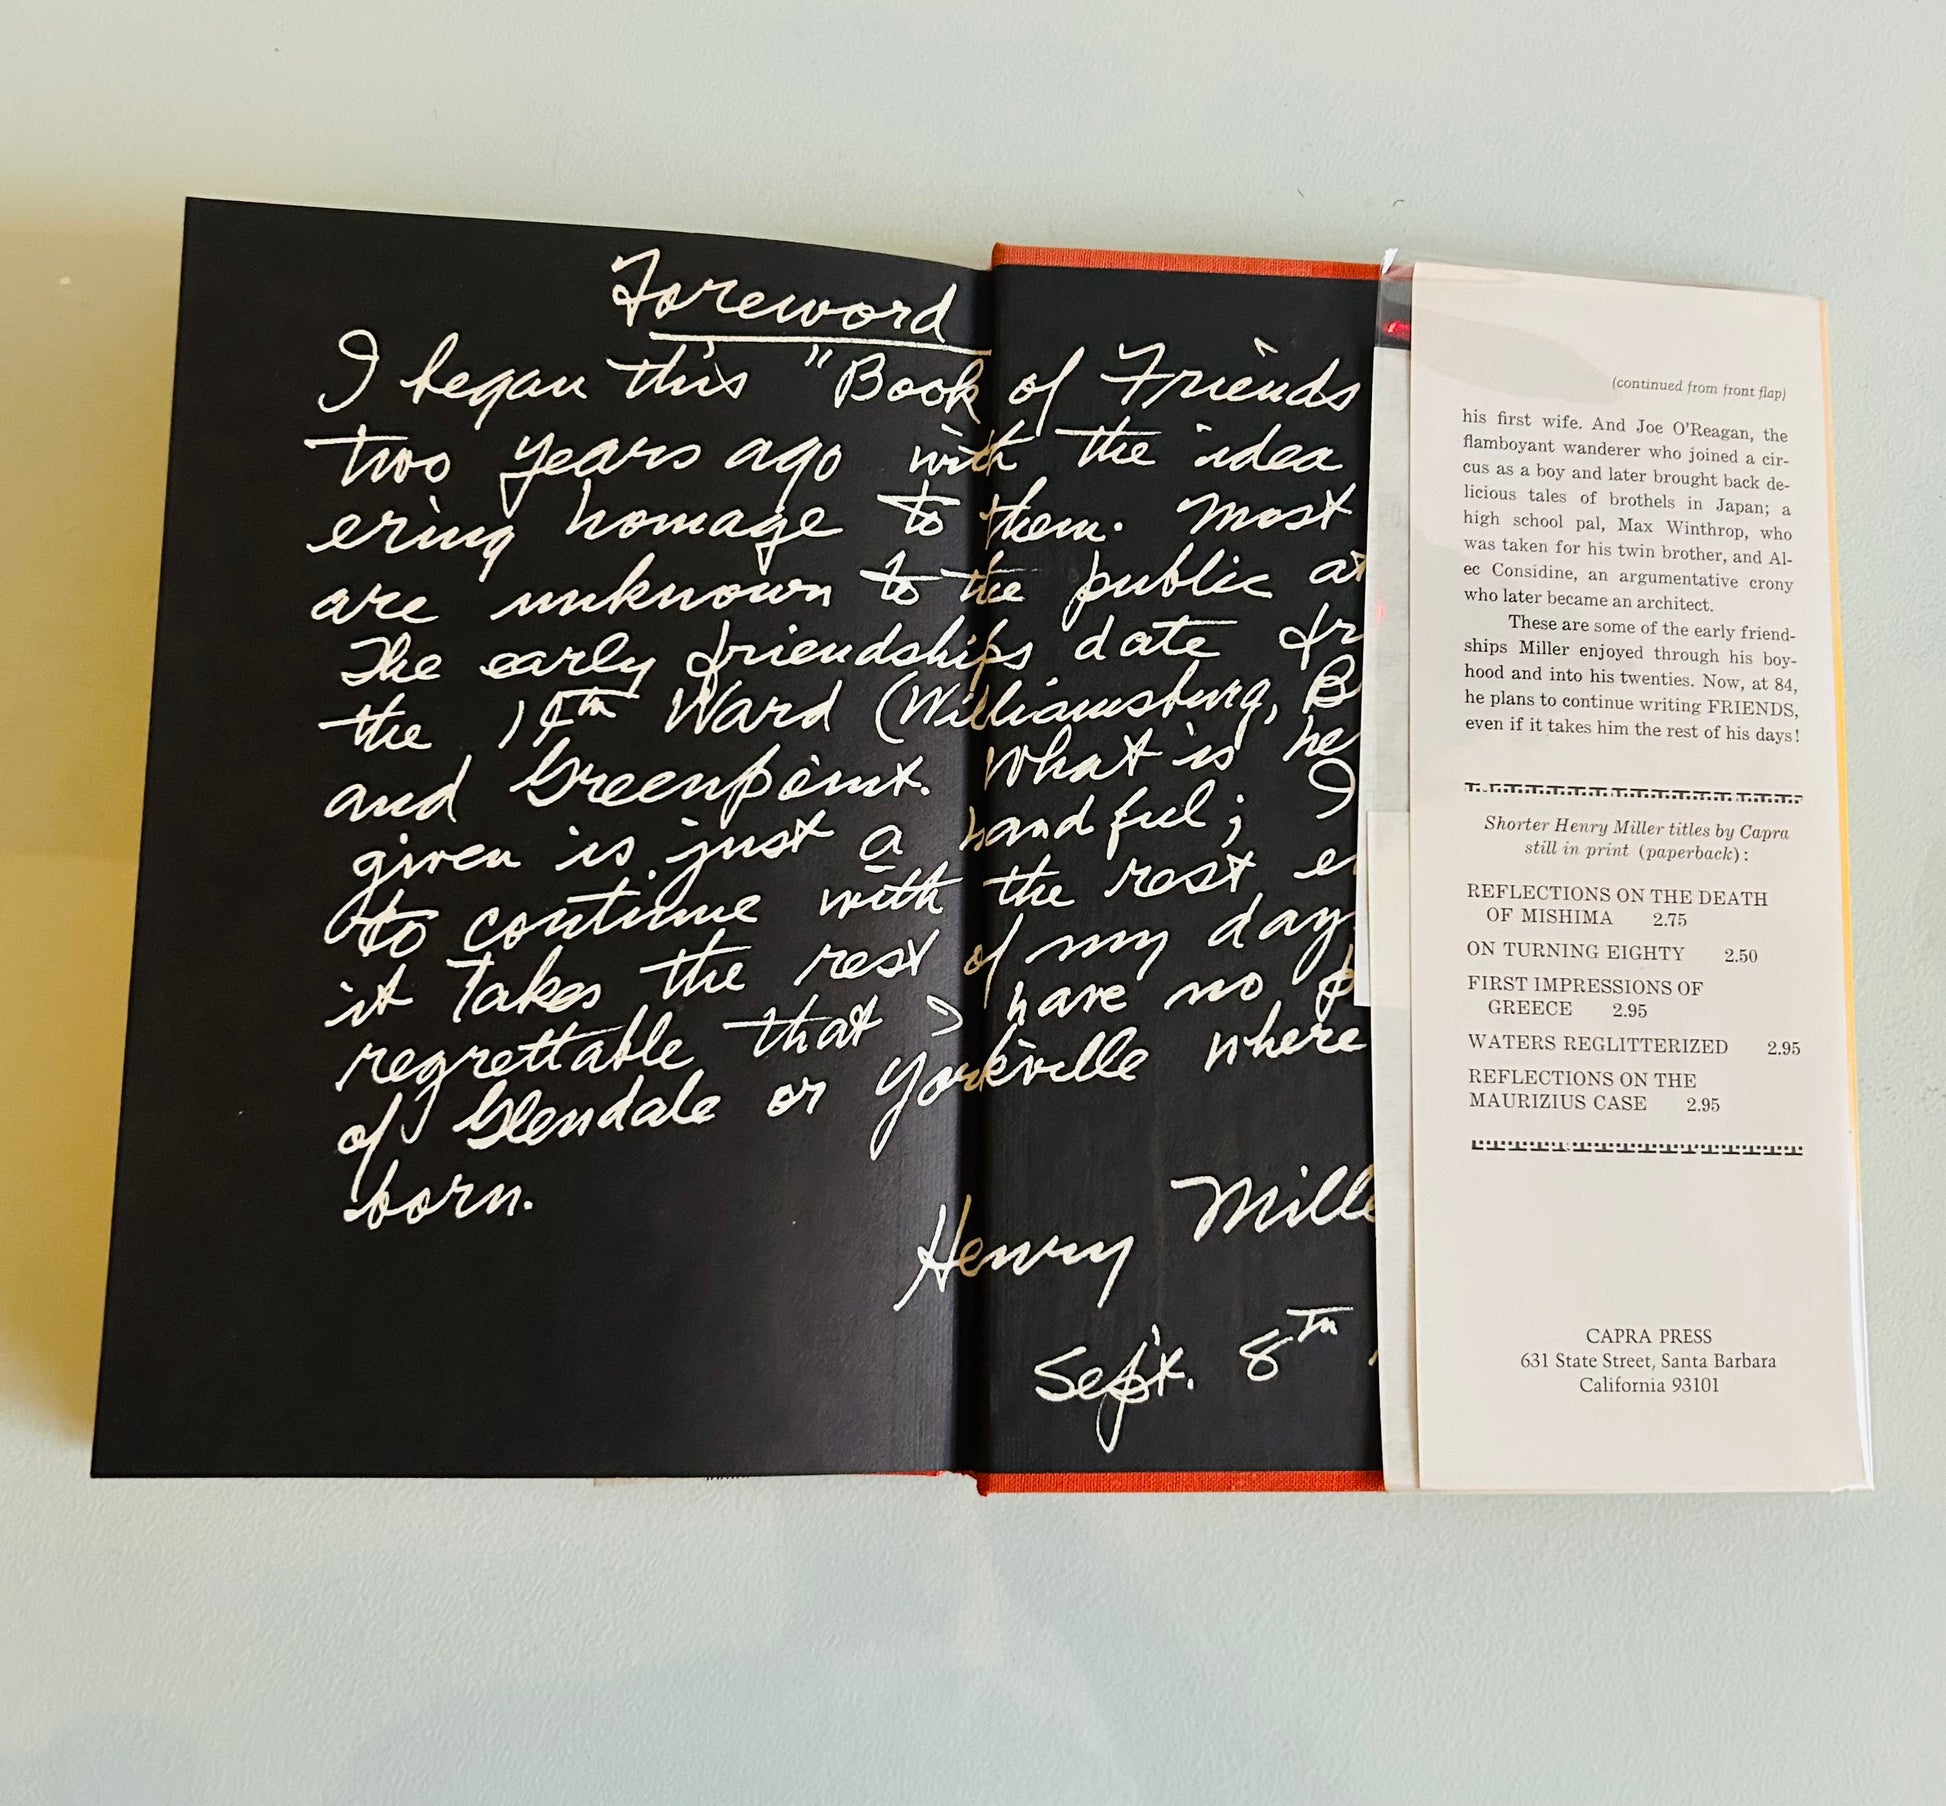 Foreword
I began this "Book of Friends
two years ago with the idea
ering homage to them. Most
are unknown to the public at
The early friendships date fr
the 14th Ward (Williamsburg, B
and Greenpoint. What is he
given is just a handful; I
to continue with the rest e
it takes the rest of my day
regrettable that I have no
of Glendale or Yorkville where
born.
Henry Mille
Sept. 8th
(continued from front flap)
his first wife. And Joe O'Reagan, the
flamboyant wanderer who joined a cir-
cus as a boy and later brought back de-
licious tales of brothels in Japan; a
high school pal, Max Winthrop, who
was taken for his twin brother, and Al-
ec Considine, an argumentative crony
who later became an architect.
These are some of the early friend-
ships Miller enjoyed through his boy-
hood and into his twenties. Now, at 84,
he plans to continue writing FRIENDS,
even if it takes him the rest of his days!
Shorter Henry Miller titles by Capra
still in print (paperback):
REFLECTIONS ON THE DEATH
OF MISHIMA 2.75
ON TURNING EIGHTY 2.50
FIRST IMPRESSIONS OF
GREECE 2.95
WATERS REGLITTERIZED 2.95
REFLECTIONS ON THE
MAURIZIUS CASE 2.95
CAPRA PRESS
631 State Street, Santa Barbara
California 93101